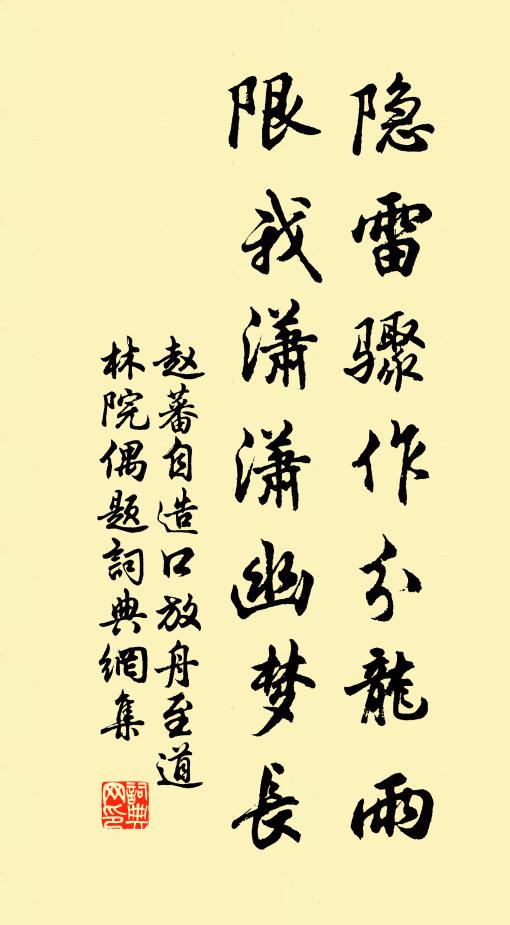 隐雷骤作分龍雨
限我瀟瀟幽梦長
赵蕃自造口放舟至道
林院偶题詞典網集
詞典网印